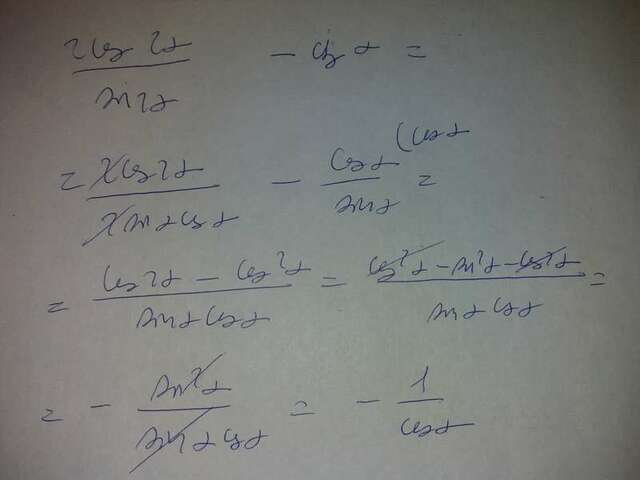 2cos2α / sin2α − ctgα =
= 2cos2α / 2sinαcosα − cosα (cosα / sinα =
= cos2α − cos²α / sinαcosα = cos²α − sin²α − cos²α / sinαcosα =
= − sin²α / sinαcosα = − 1 / cosα